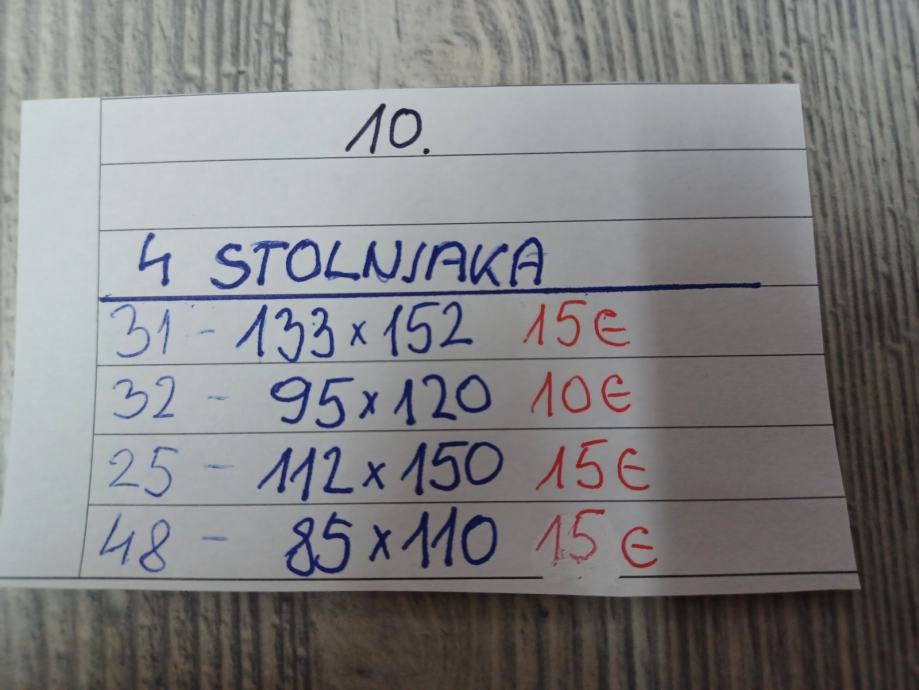 10.
4 STOLNJAKA
31 - 133 x 152 15€
32 - 95 x 120 10€
25 - 112 x 150 15€
48 - 85 x 110 15€